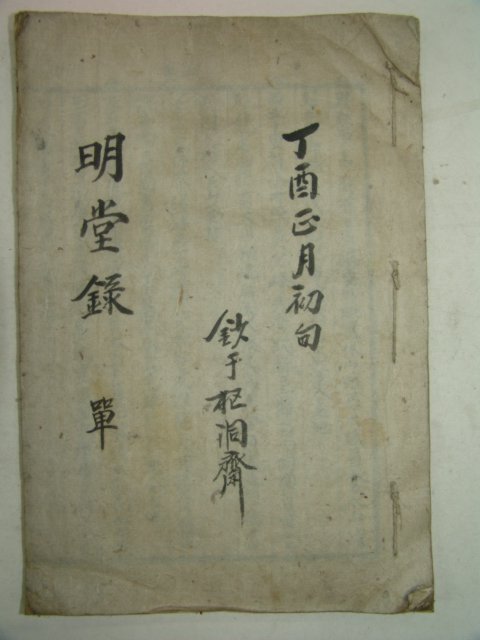 丁酉正月初旬
鈔于柩洞齋
明堂錄 單